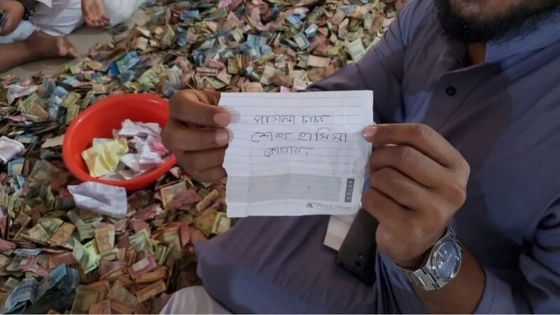 পাগলা চাচা
শেখ হাসিনা
কোথায়?